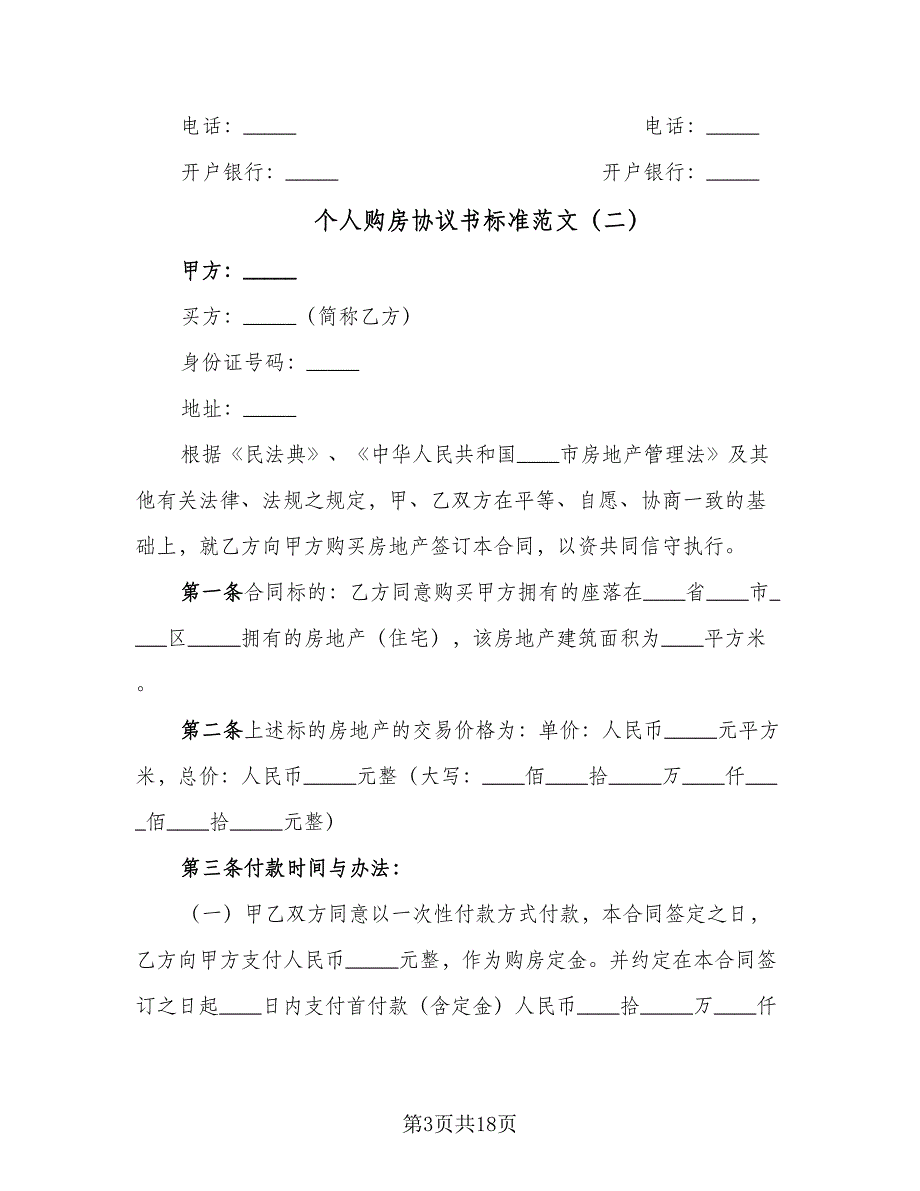 电话：_____ 电话：_____
开户银行：_____ 开户银行：_____
个人购房协议书标准范文（二）
甲方：_____
买方：_____（简称乙方）
身份证号码：_____
地址：_____
根据《民法典》、《中华人民共和国____市房地产管理法》及其
他有关法律、法规之规定，甲、乙双方在平等、自愿、协商一致的基
础上，就乙方向甲方购买房地产签订本合同，以资共同信守执行。
第一条合同标的：乙方同意购买甲方拥有的座落在____省____市_
___区_____拥有的房地产（住宅），该房地产建筑面积为____平方米
。
第二条上述标的房地产的交易价格为：单价：人民币_____元平方
米，总价：人民币_____元整（大写：____佰____拾_____万____仟___
_佰____拾_____元整）
第三条付款时间与办法：
（一）甲乙双方同意以一次性付款方式付款，本合同签定之日，
乙方向甲方支付人民币_____元整，作为购房定金。并约定在本合同签
订之日起____日内支付首付款（含定金）人民币____拾_____万____仟
第3页共18页